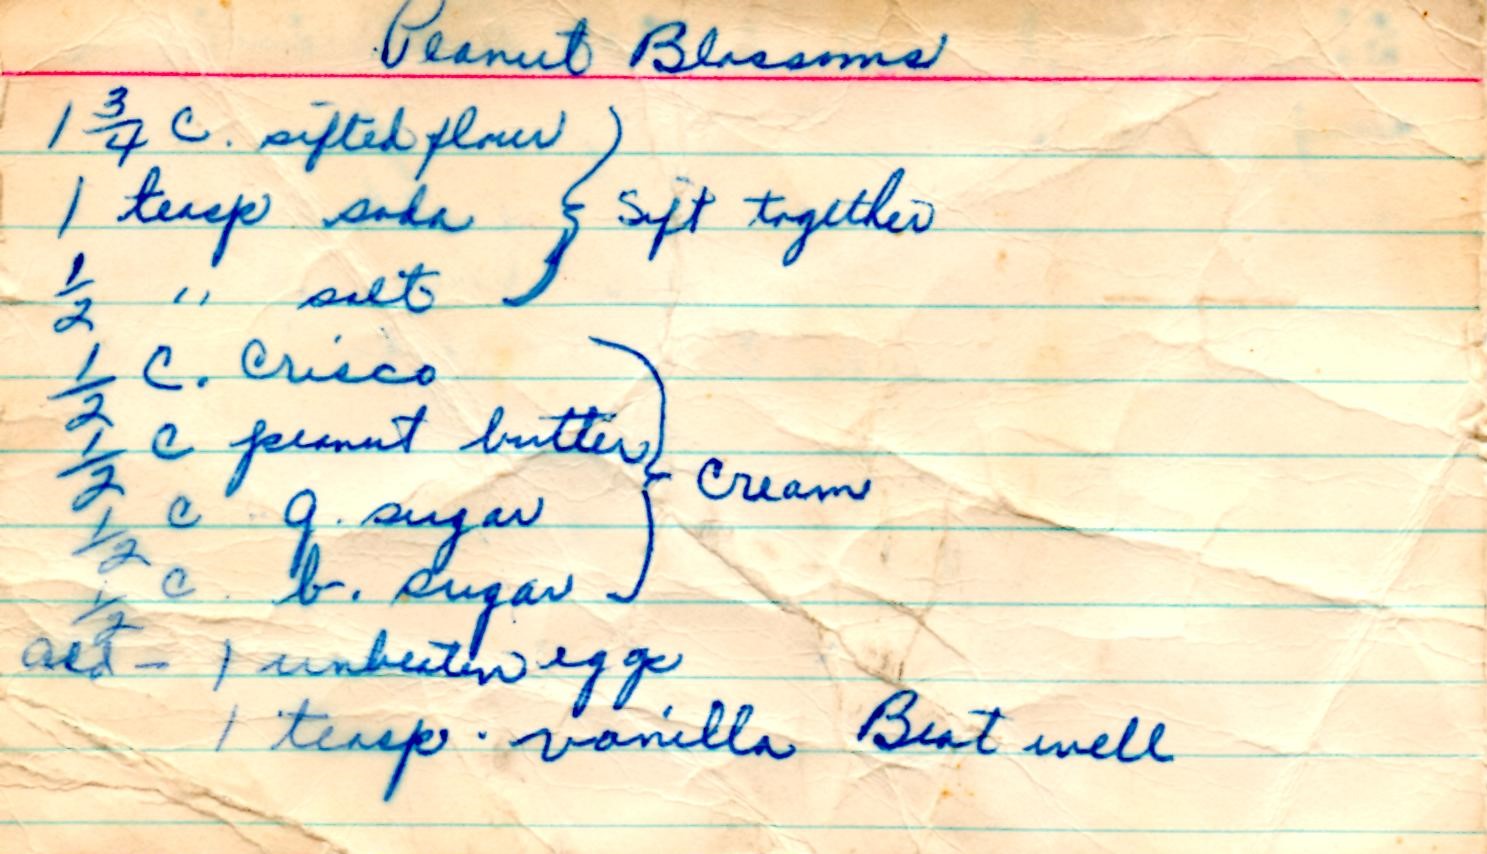 Peanut Blossoms
1 3/4 C. sifted flour
1 teasp soda } Sift together
1/2 " salt
1/2 C. Crisco
1/2 C peanut butter
1/2 C g. sugar } Cream
1/2 C. b. sugar
add - 1 unbeaten egg
1 teasp. vanilla Beat well